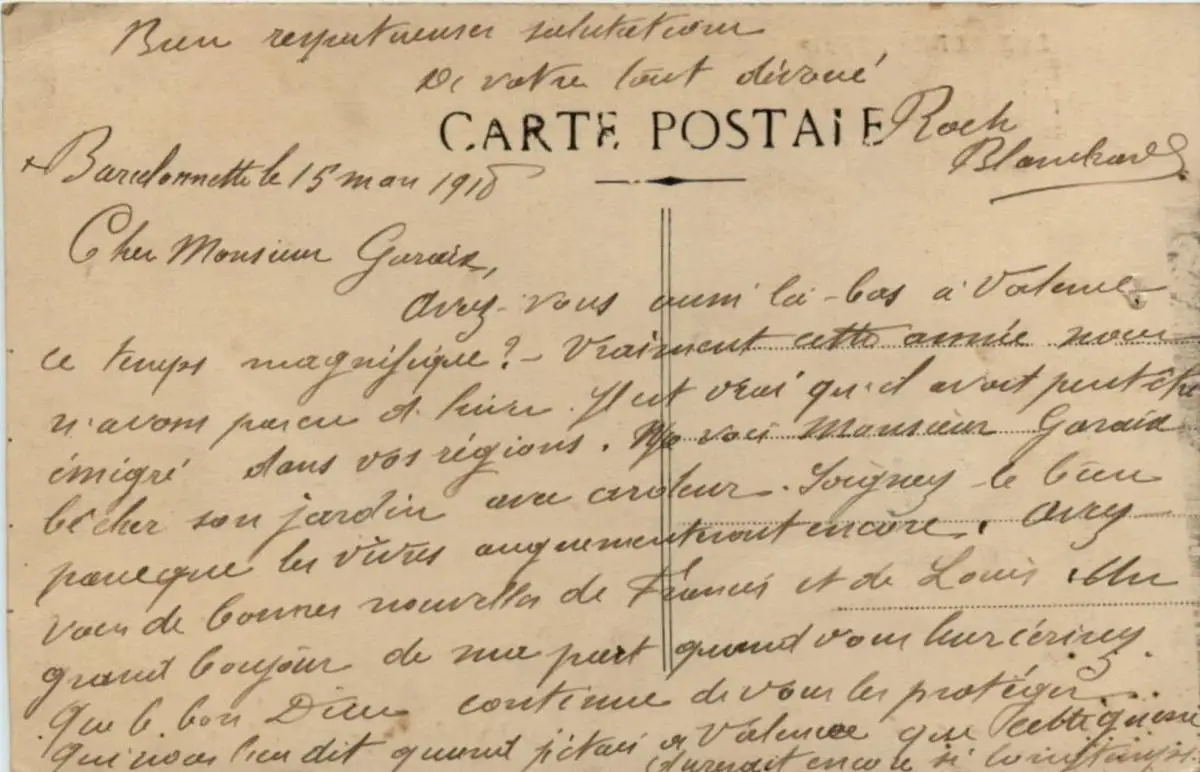 Bien respectueuses salutations
De votre tout dévoué
CARTE POSTALE Roch
Blanchard
Barcelonnette le 15 mars 1918
Cher Monsieur Garaix,
Avez-vous aussi là-bas à Valence
ce temps magnifique? - Vraiment cette année nous
n'avons pas eu d'hiver. Il est vrai qu'il avait peut être
émigré dans vos régions. Monsieur Garaix
bêcher son jardin avec ardeur. Soignez-le bien
parceque les vivres augmenteront encore. Avez
vous de bonnes nouvelles de Francis et de Louis. Un
grand bonjour de ma part quand vous leur écrirez.
Que le bon Dieu continue de vous les protéger...
Qui nous l'eu dit quand j'étais à Valence que cette guerre
durerait encore si longtemps